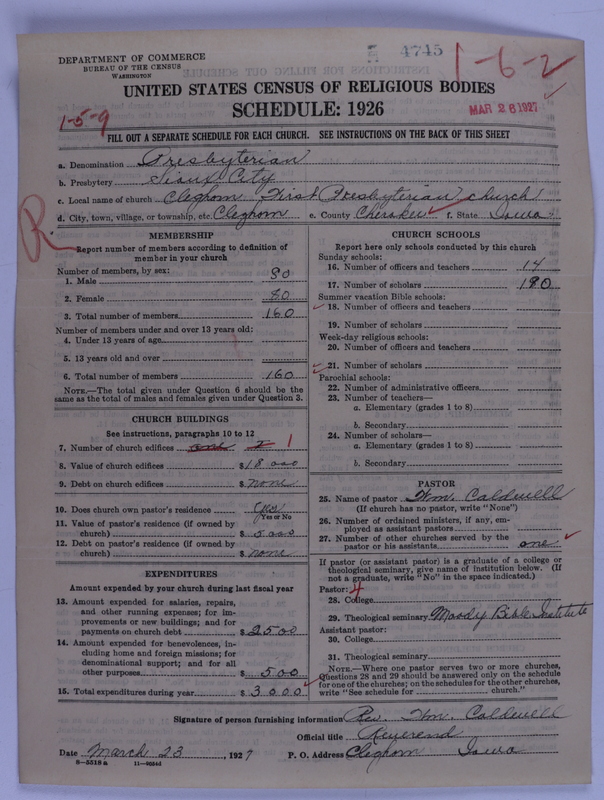 DEPARTMENT OF COMMERCE
BUREAU OF THE CENSUS
WASHINGTON
4745
1-6-2
UNITED STATES CENSUS OF RELIGIOUS BODIES
SCHEDULE: 1926
MAR 26 1927
1-5-9
FILL OUT A SEPARATE SCHEDULE FOR EACH CHURCH. SEE INSTRUCTIONS ON THE BACK OF THIS SHEET
a. Denomination Presbyterian
b. Presbytery Sioux City
c. Local name of church Cleghorn First Presbyterian church
d. City, town, village, or township, etc. Cleghorn e. County Cherokee f. State Iowa
R
MEMBERSHIP
Report number of members according to definition of
member in your church
Number of members, by sex:
1. Male 80
2. Female 80
3. Total number of members 160
Number of members under and over 13 years old:
4. Under 13 years of age
5. 13 years old and over
6. Total number of members 160
NOTE.—The total given under Question 6 should be the
same as the total of males and females given under Question 3.
CHURCH BUILDINGS
See instructions, paragraphs 10 to 12
7. Number of church edifices one 1
8. Value of church edifices $18000
9. Debt on church edifices $none
10. Does church own pastor's residence yes
Yes or No
11. Value of pastor's residence (if owned by
church) $5000
12. Debt on pastor's residence (if owned by
church) $none
EXPENDITURES
Amount expended by your church during last fiscal year
13. Amount expended for salaries, repairs,
and other running expense; for im-
provements or new buildings; and for
payments on church debt $2500
14. Amount expended for benevolences, in-
cluding home and foreign missions; for
denominational support; and for all
other purposes $500
15. Total expenditures during year $3000
CHURCH SCHOOLS
Report here only schools conducted by this church
Sunday schools:
16. Number of officers and teachers 14
17. Number of scholars 180
Summer vacation Bible schools:
18. Number of officers and teachers
19. Number of scholars
Week-day religious schools:
20. Number of officers and teachers
21. Number of scholars
Parochial schools:
22. Number of administrative officers
23. Number of teachers—
a. Elementary (grades 1 to 8)
b. Secondary
24. Number of scholars—
a. Elementary (grades 1 to 8)
b. Secondary
PASTOR
25. Name of pastor Wm. Caldwell
(If church has no pastor, write "None")
26. Number of ordained ministers, if any, em-
ployed as assistant pastors
27. Number of other churches served by the
pastor or his assistants one
If pastor (or assistant pastor) is a graduate of a college or
theological seminary, give name of institution below. (If
not a graduate, write "No" in the space indicated.)
Pastor: 4
28. College
29. Theological seminary Moody Bible Institute
Assistant pastor:
30. College
31. Theological seminary
NOTE.—Where one pastor serves two or more churches,
Questions 28 and 29 should be answered only on the schedule
for one of the churches; on the schedules for the other churches,
write "See schedule for church."
Signature of person furnishing information Rev. Wm. Caldwell
Official title Reverend
Date March 23, 1927 P. O. Address Cleghorn Iowa
8—5518 a